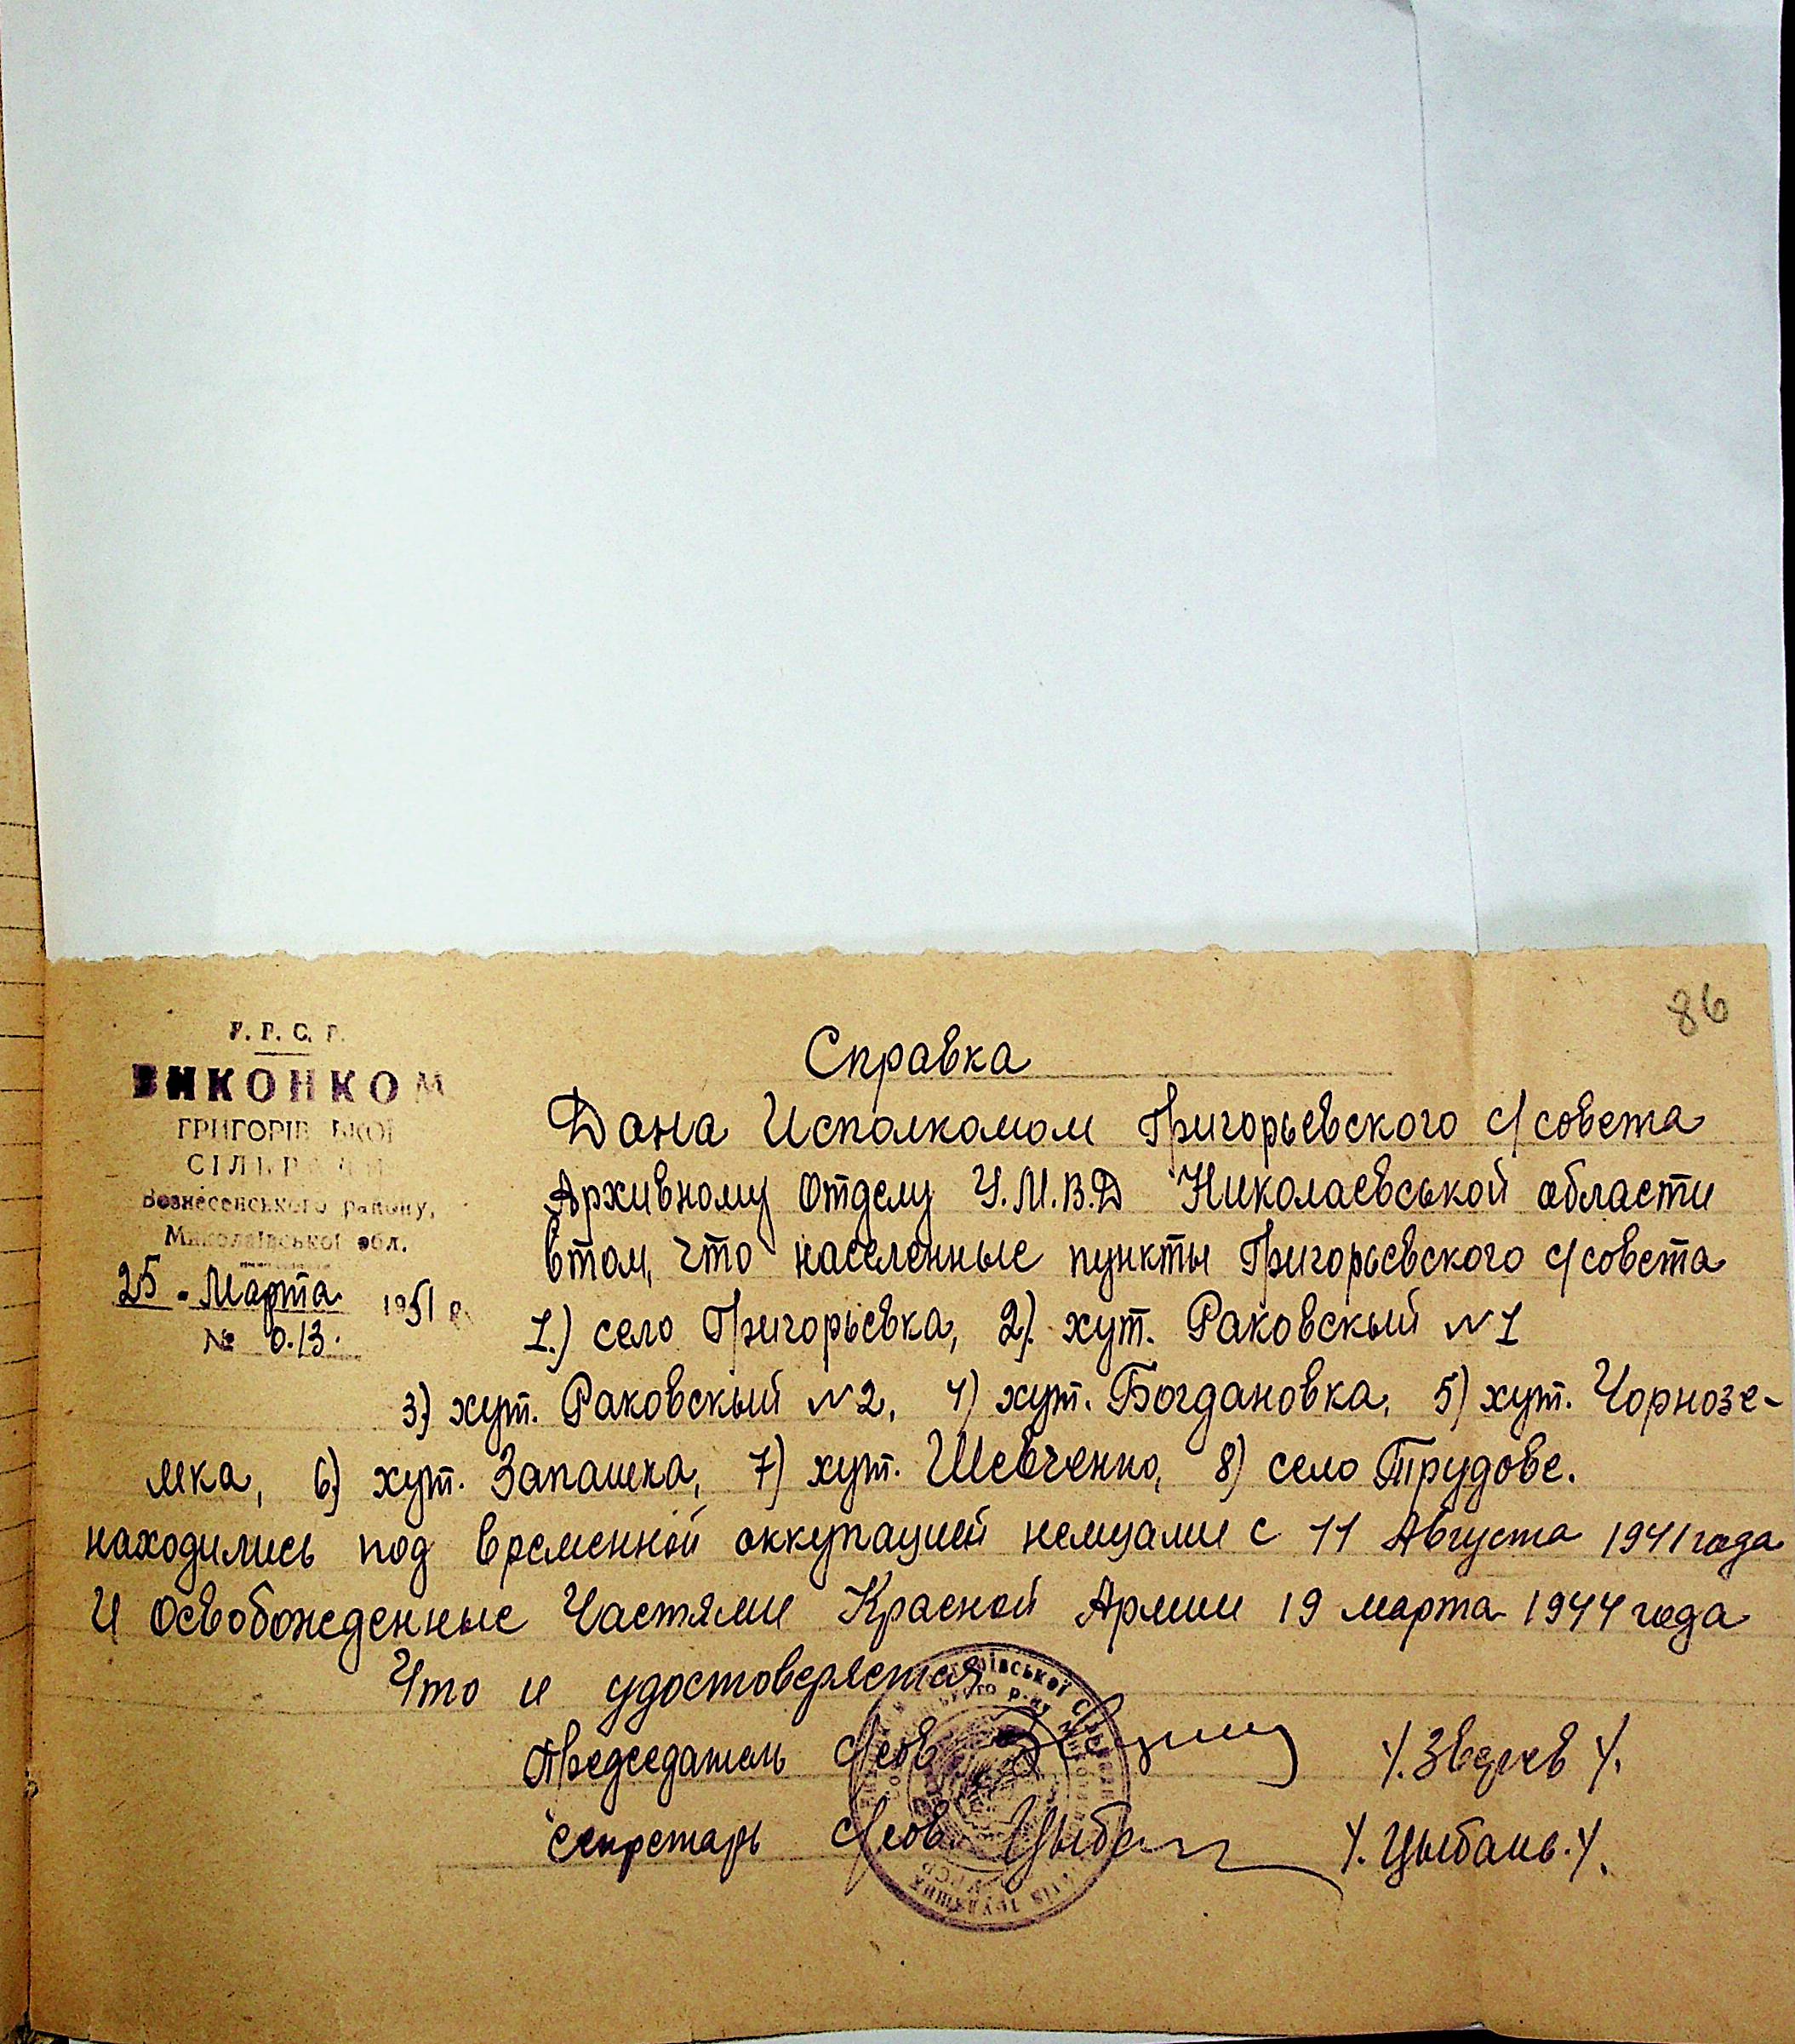 86
У.Р.С.Р.
ВИКОНКОМ
ГРИГОРІВ ЬКОЇ
СІЛЬРАДИ
Вознесенського району,
Миколаївської обл.
25 . Марта 1951 р.
№ 0.13.
Справка
Дана Исполкомом Григорьевского с/совета
Архивному отделу У.М.В.Д Николаевськой области
втом, что населенные пункты Григорьевского с/совета
1.) село Григорьевка, 2). хут. Раковскый №1
3) хут. Раковскый №2, 4) хут. Богдановка, 5) хут. Чорнозе-
мка, 6) хут. Запашка, 7) хут. Шевченко, 8) село Трудове.
находились под временной оккупацией немцами с 11 Августа 1941 года
И Освобожденные Частями Красной Армии 19 марта 1944 года
Что и удостоверяется
Председатель с/сов. /.Зверев /.
Секретарь с/сов. Цыбань /. Цыбань. /.